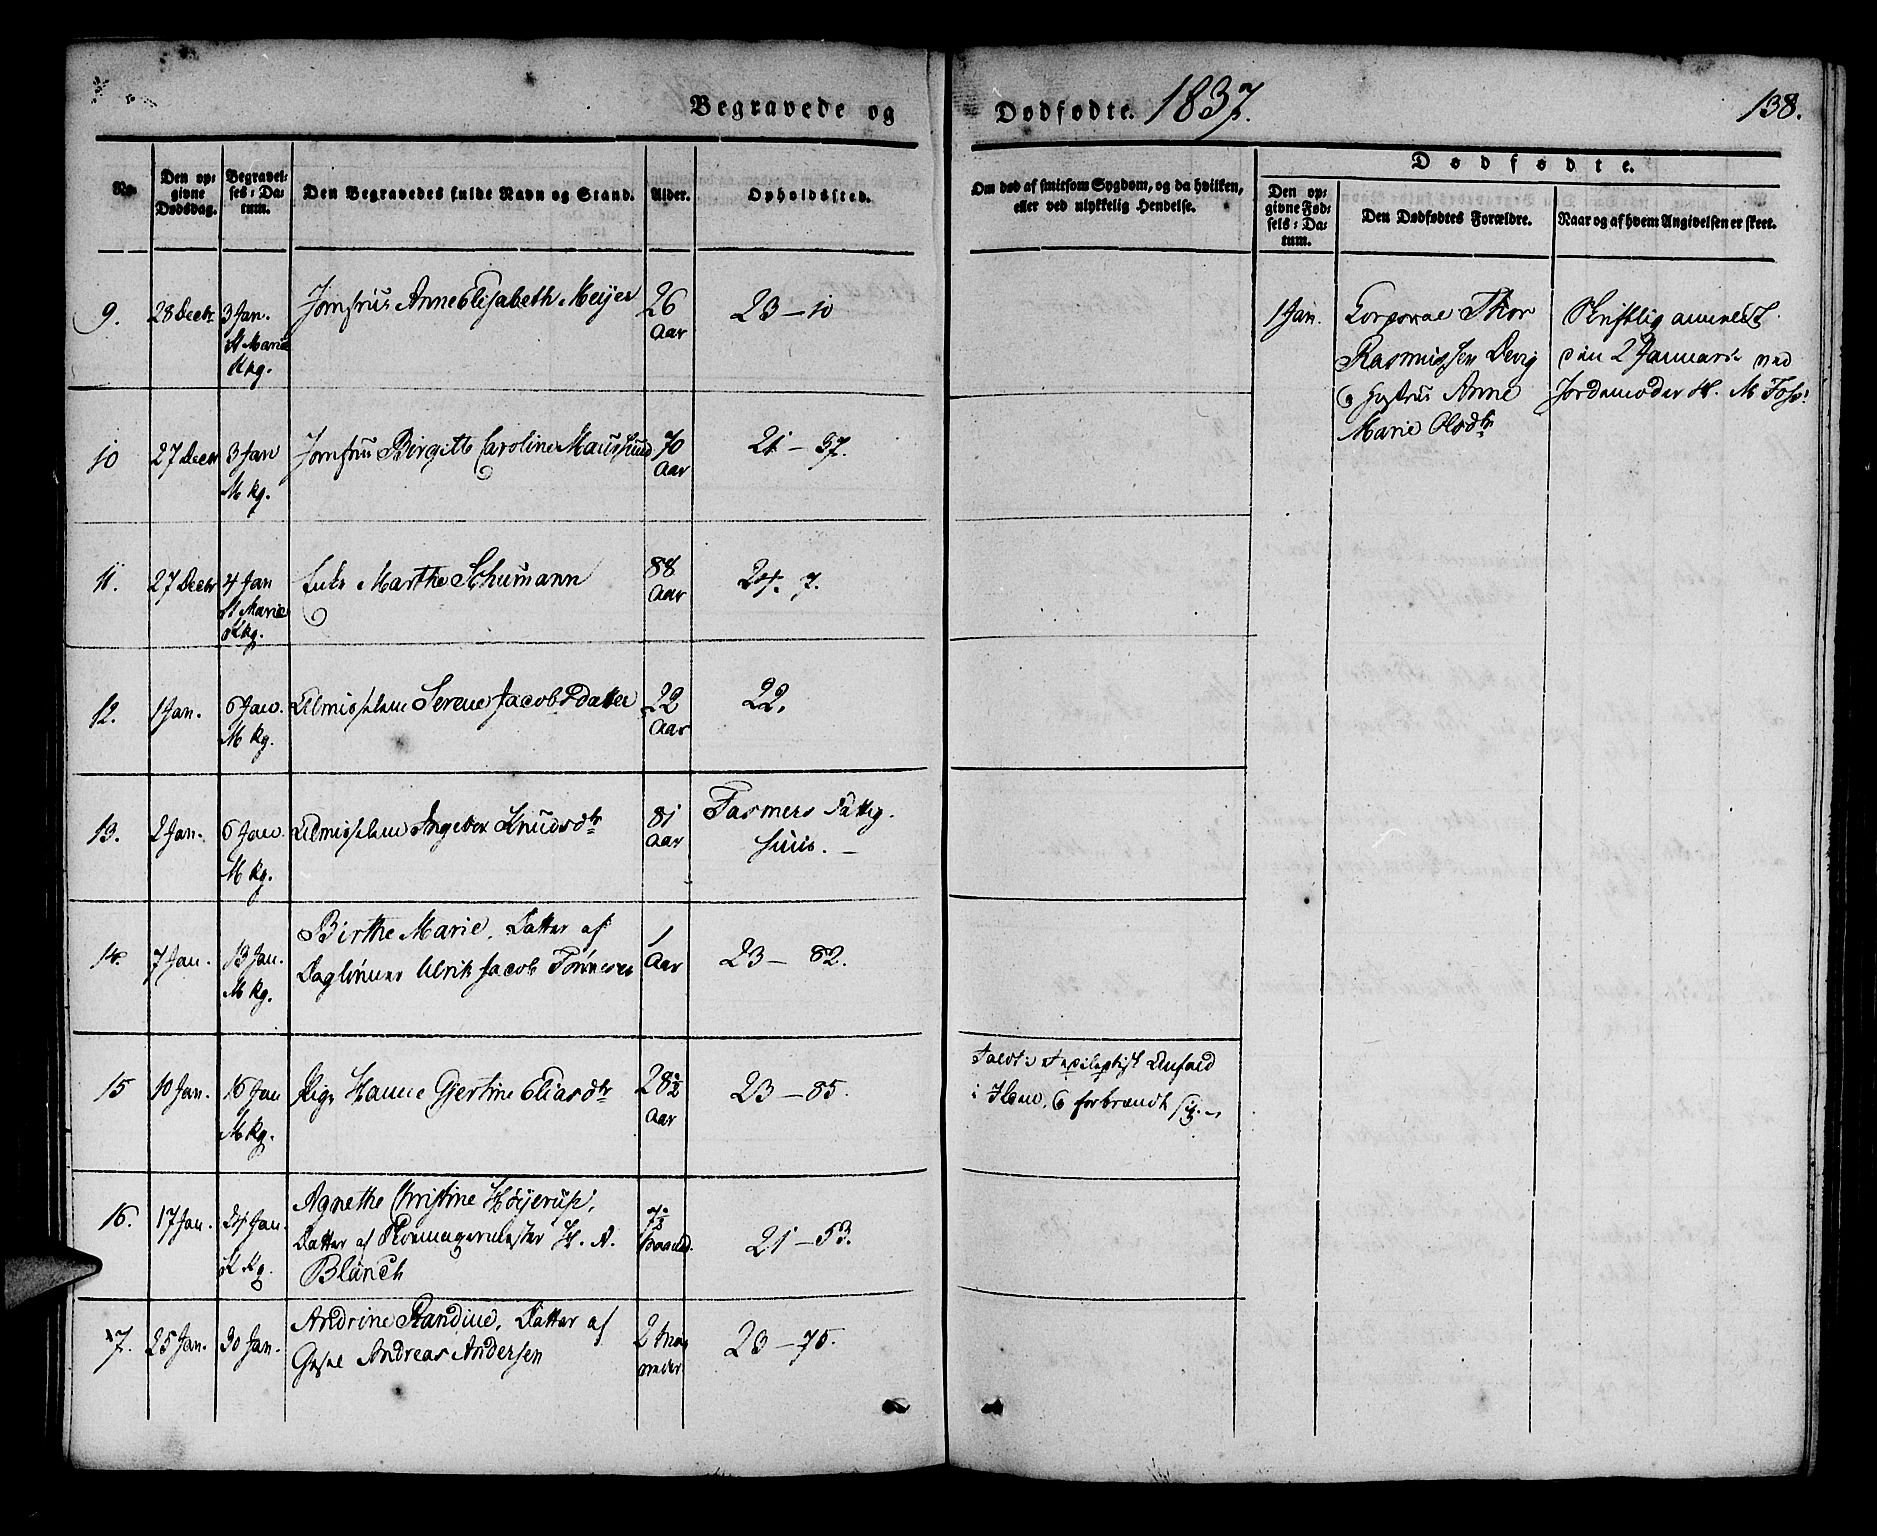 Begravede og Dødfødte. 1837. 138.
No.
Den opgivne Dødsdag.
Begravelses-Datum.
Den Begravedes fulde Navn og Stand.
Alder.
Opholdssted.
Om død af smitsom Sygdom, og da hvilken, eller ved ulykkelig Hendelse.
Dødfødte.
Den opgivne Fødsels-Datum.
Den Dødfødtes Forældre.
Naar og af hvem Angivelsen er skeet.
9. 28 Decbr 3 Jan. St Marie Kkg. Jomfrue Anne Elisabeth Meijer 26 Aar 23 – 10
1 Jan.
Corporal Thor
Rasmussen Devig
og Hustrue Anne
Marie Olsdtr
Skriftlig anmeldt
den 2 Januari ved
Jordemoder H. M Foss:
10 27 Decbr 3 Jan M kg. Jomfrue Birgitte Caroline Maussund 70 Aar 21 – 37.
11. 27 Decbr 4 Jan St Marie Kkg. Enke Marthe Schumann 88 Aar 24. 7.
12. 1 Jan. 6 Jan. M kg. Almisselem Serene Jacobsdatter 22 Aar 22.
13. 2 Jan. 6 Jan. M kg. Almisselem Ingebor Knudsdtr 81 Aar Fasmers Fattighuus. –
14. 7 Jan. 13 Jan. M kg. Birthe Marie, Datter af
Dagleiner Ulrik Jacob Tønnesen 1 Aar 23 – 82.
15 10 Jan. 16 Jan M kg. Pige Hanne Gjertine Eliasdtr 28½ Aar 23 – 85.
Faldt i epileptisk Anfald
i Ilden, og forbrændt sig. –
16. 17 Jan. 24 Jan. K Kg. Agnethe Christine Høijerup,
Datter af H. A.
Blauch 7½ Maaned. 21 – 53.
17. 25 Jan. 30 Jan. Andrine Randine, Datter af
Andreas Andersen 2 Maaneder 23 – 75.